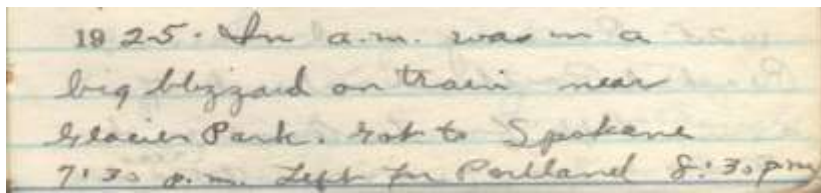 1925. In a.m. was in a
big blizzard on train near
Glacier Park. Got to Spokane
7:30 p.m. Left for Portland 8:30 pm